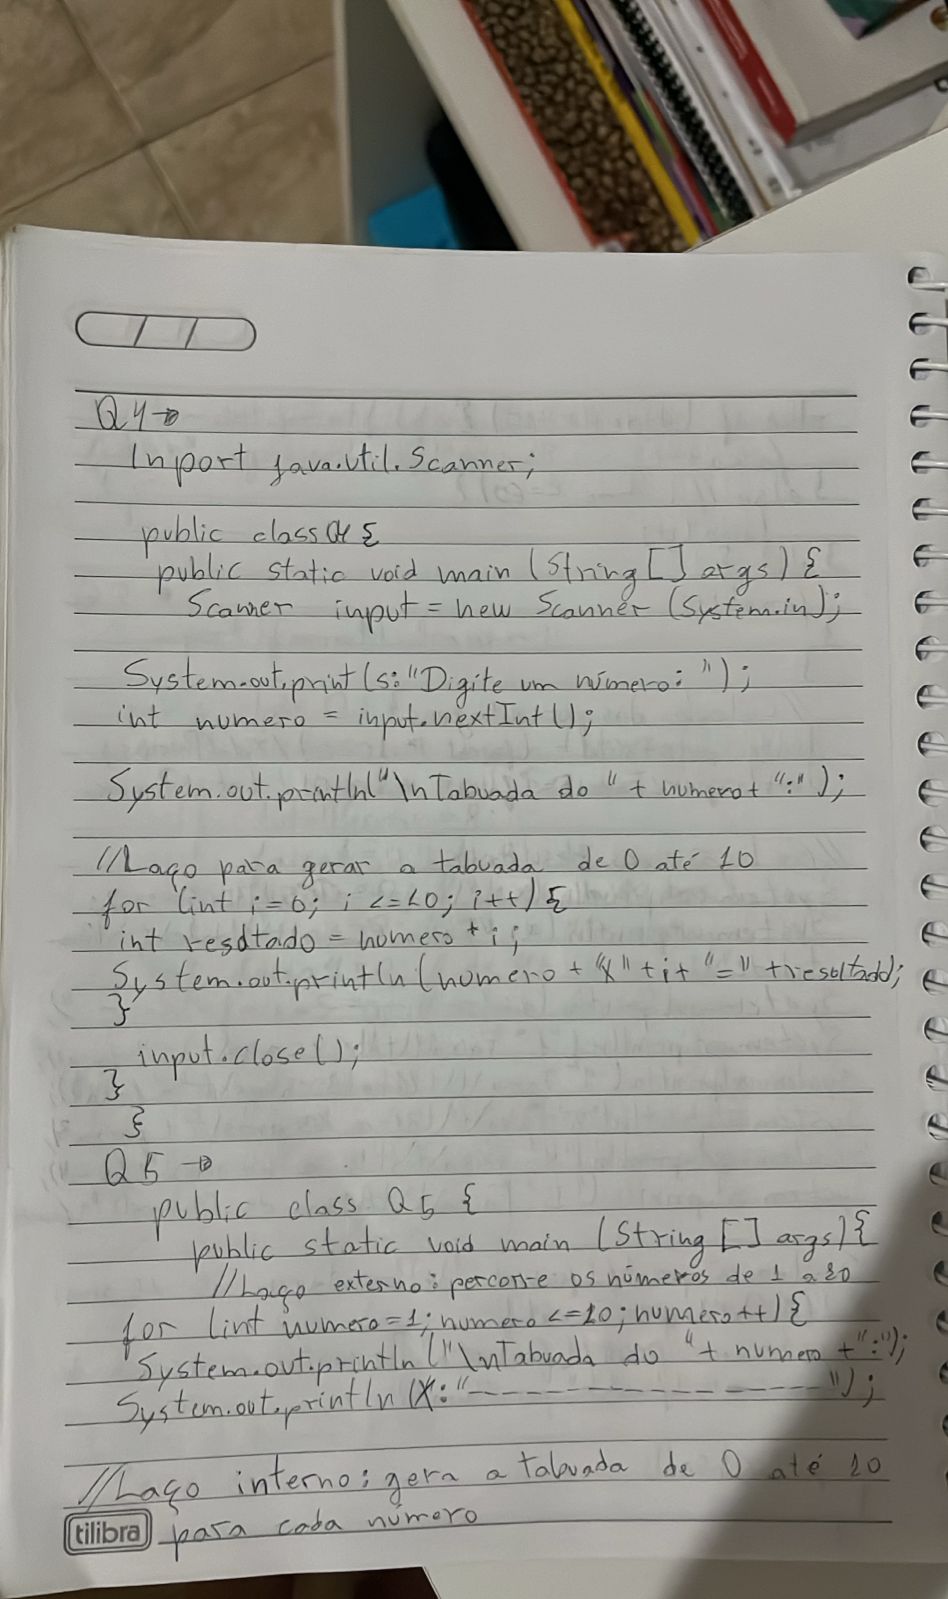 Q4→
Inport java.util.Scanner;
public class Q4 {
public static void main (String [] args) {
Scanner input = new Scanner (System.in);
System.out.print (s:"Digite um número: ");
int numero = input.nextInt();
System.out.println("\nTabuada do " + numero + ":");
//Laço para gerar a tabuada de 0 até 10
for (int i=0; i <=10; i++) {
int resultado = numero * i;
System.out.println (numero + "X" + i + "=" +resultado);
}
input.close();
}
}
Q5 →
public class Q5 {
public static void main (String [] args) {
//Laço externo: percorre os números de 1 a 10
for (int numero=1; numero <=10; numero++) {
System.out.println ("\nTabuada do " + numero + ":");
System.out.println (X:"----------------");
//Laço interno: gera a tabuada de 0 até 10
para cada número
tilibra